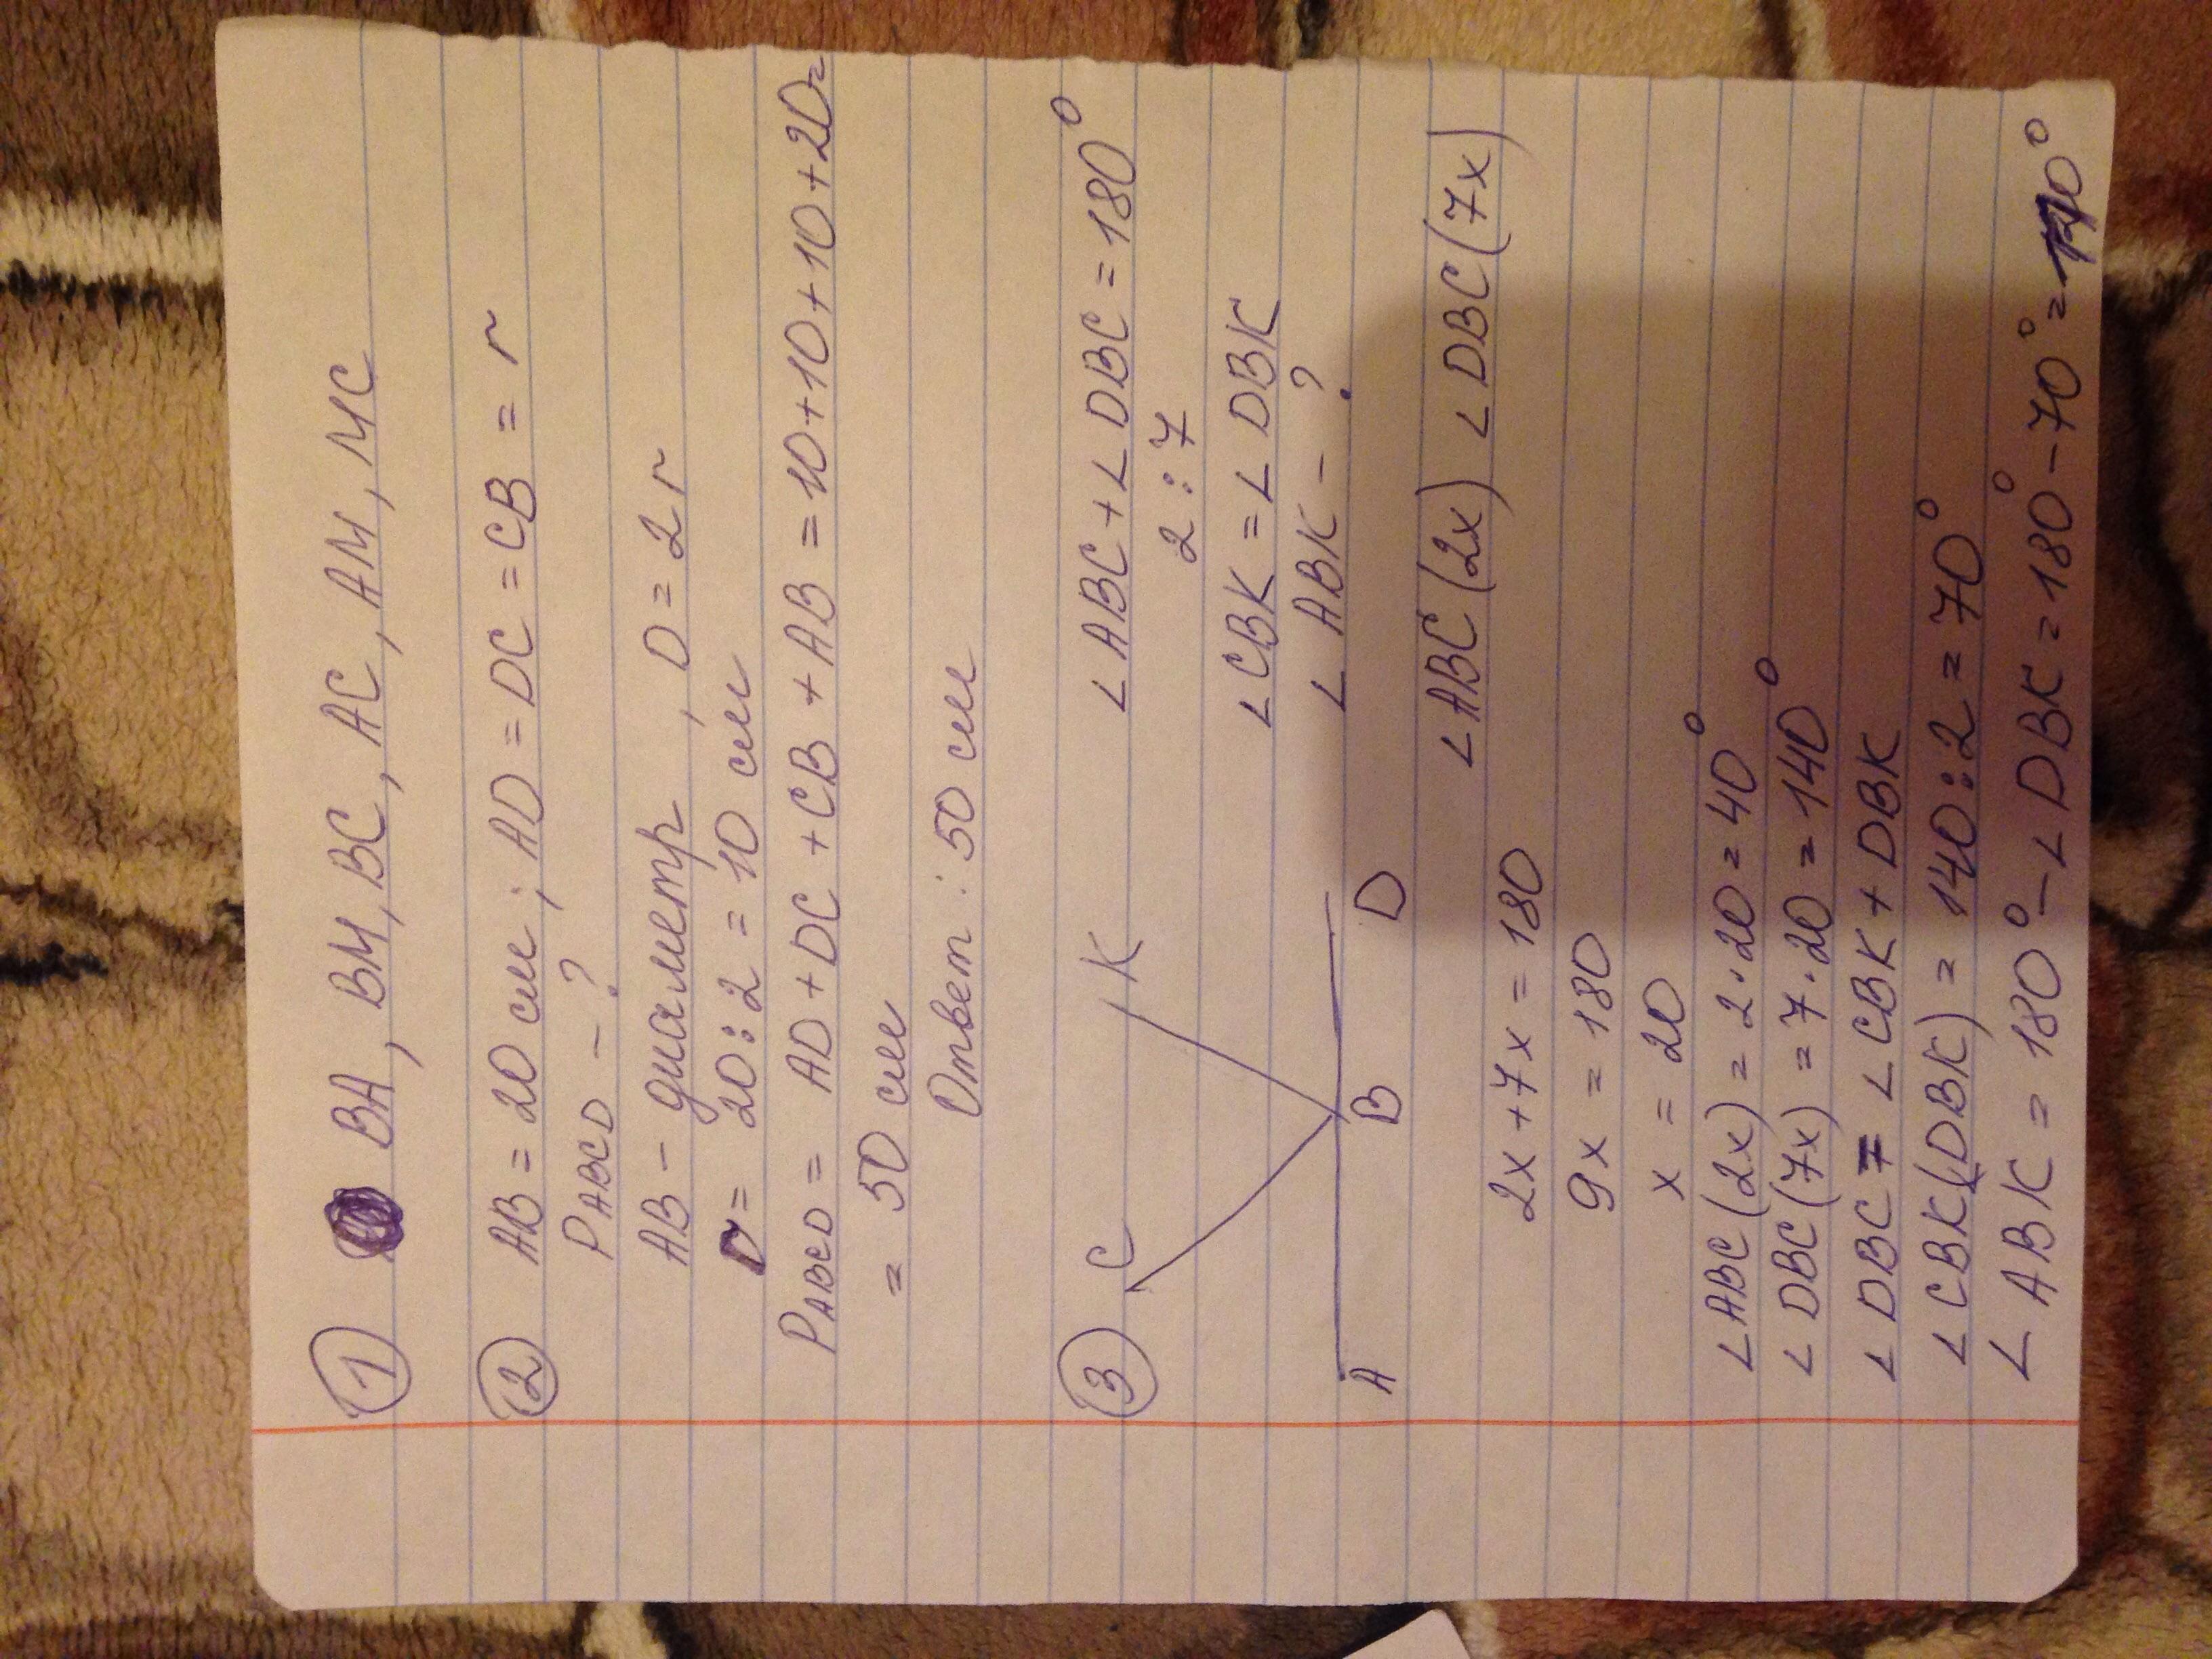 ① ВА, ВМ, ВС, АС, АМ, МС
② АВ = 20 см; AD = DC = CB = r
PABCD - ?
АВ - диаметр, D = 2r
r = 20:2 = 10 см
PABCD = AD + DC + CB + AB = 10+10+10+20=
= 50 см
Ответ: 50 см
③ C K
A B D
∠ABC + ∠DBC = 180°
2 : 7
∠CBK = ∠DBK
∠ABK - ?
∠ABC (2x) ∠DBC (7x)
2x + 7x = 180
9x = 180
x = 20
∠ABC (2x) = 2·20 = 40°
∠DBC (7x) = 7·20 = 140°
∠DBC = ∠CBK + DBK
∠CBK(DBK) = 140:2 = 70°
∠ABK = 180° - ∠DBK = 180° - 70° = 110°